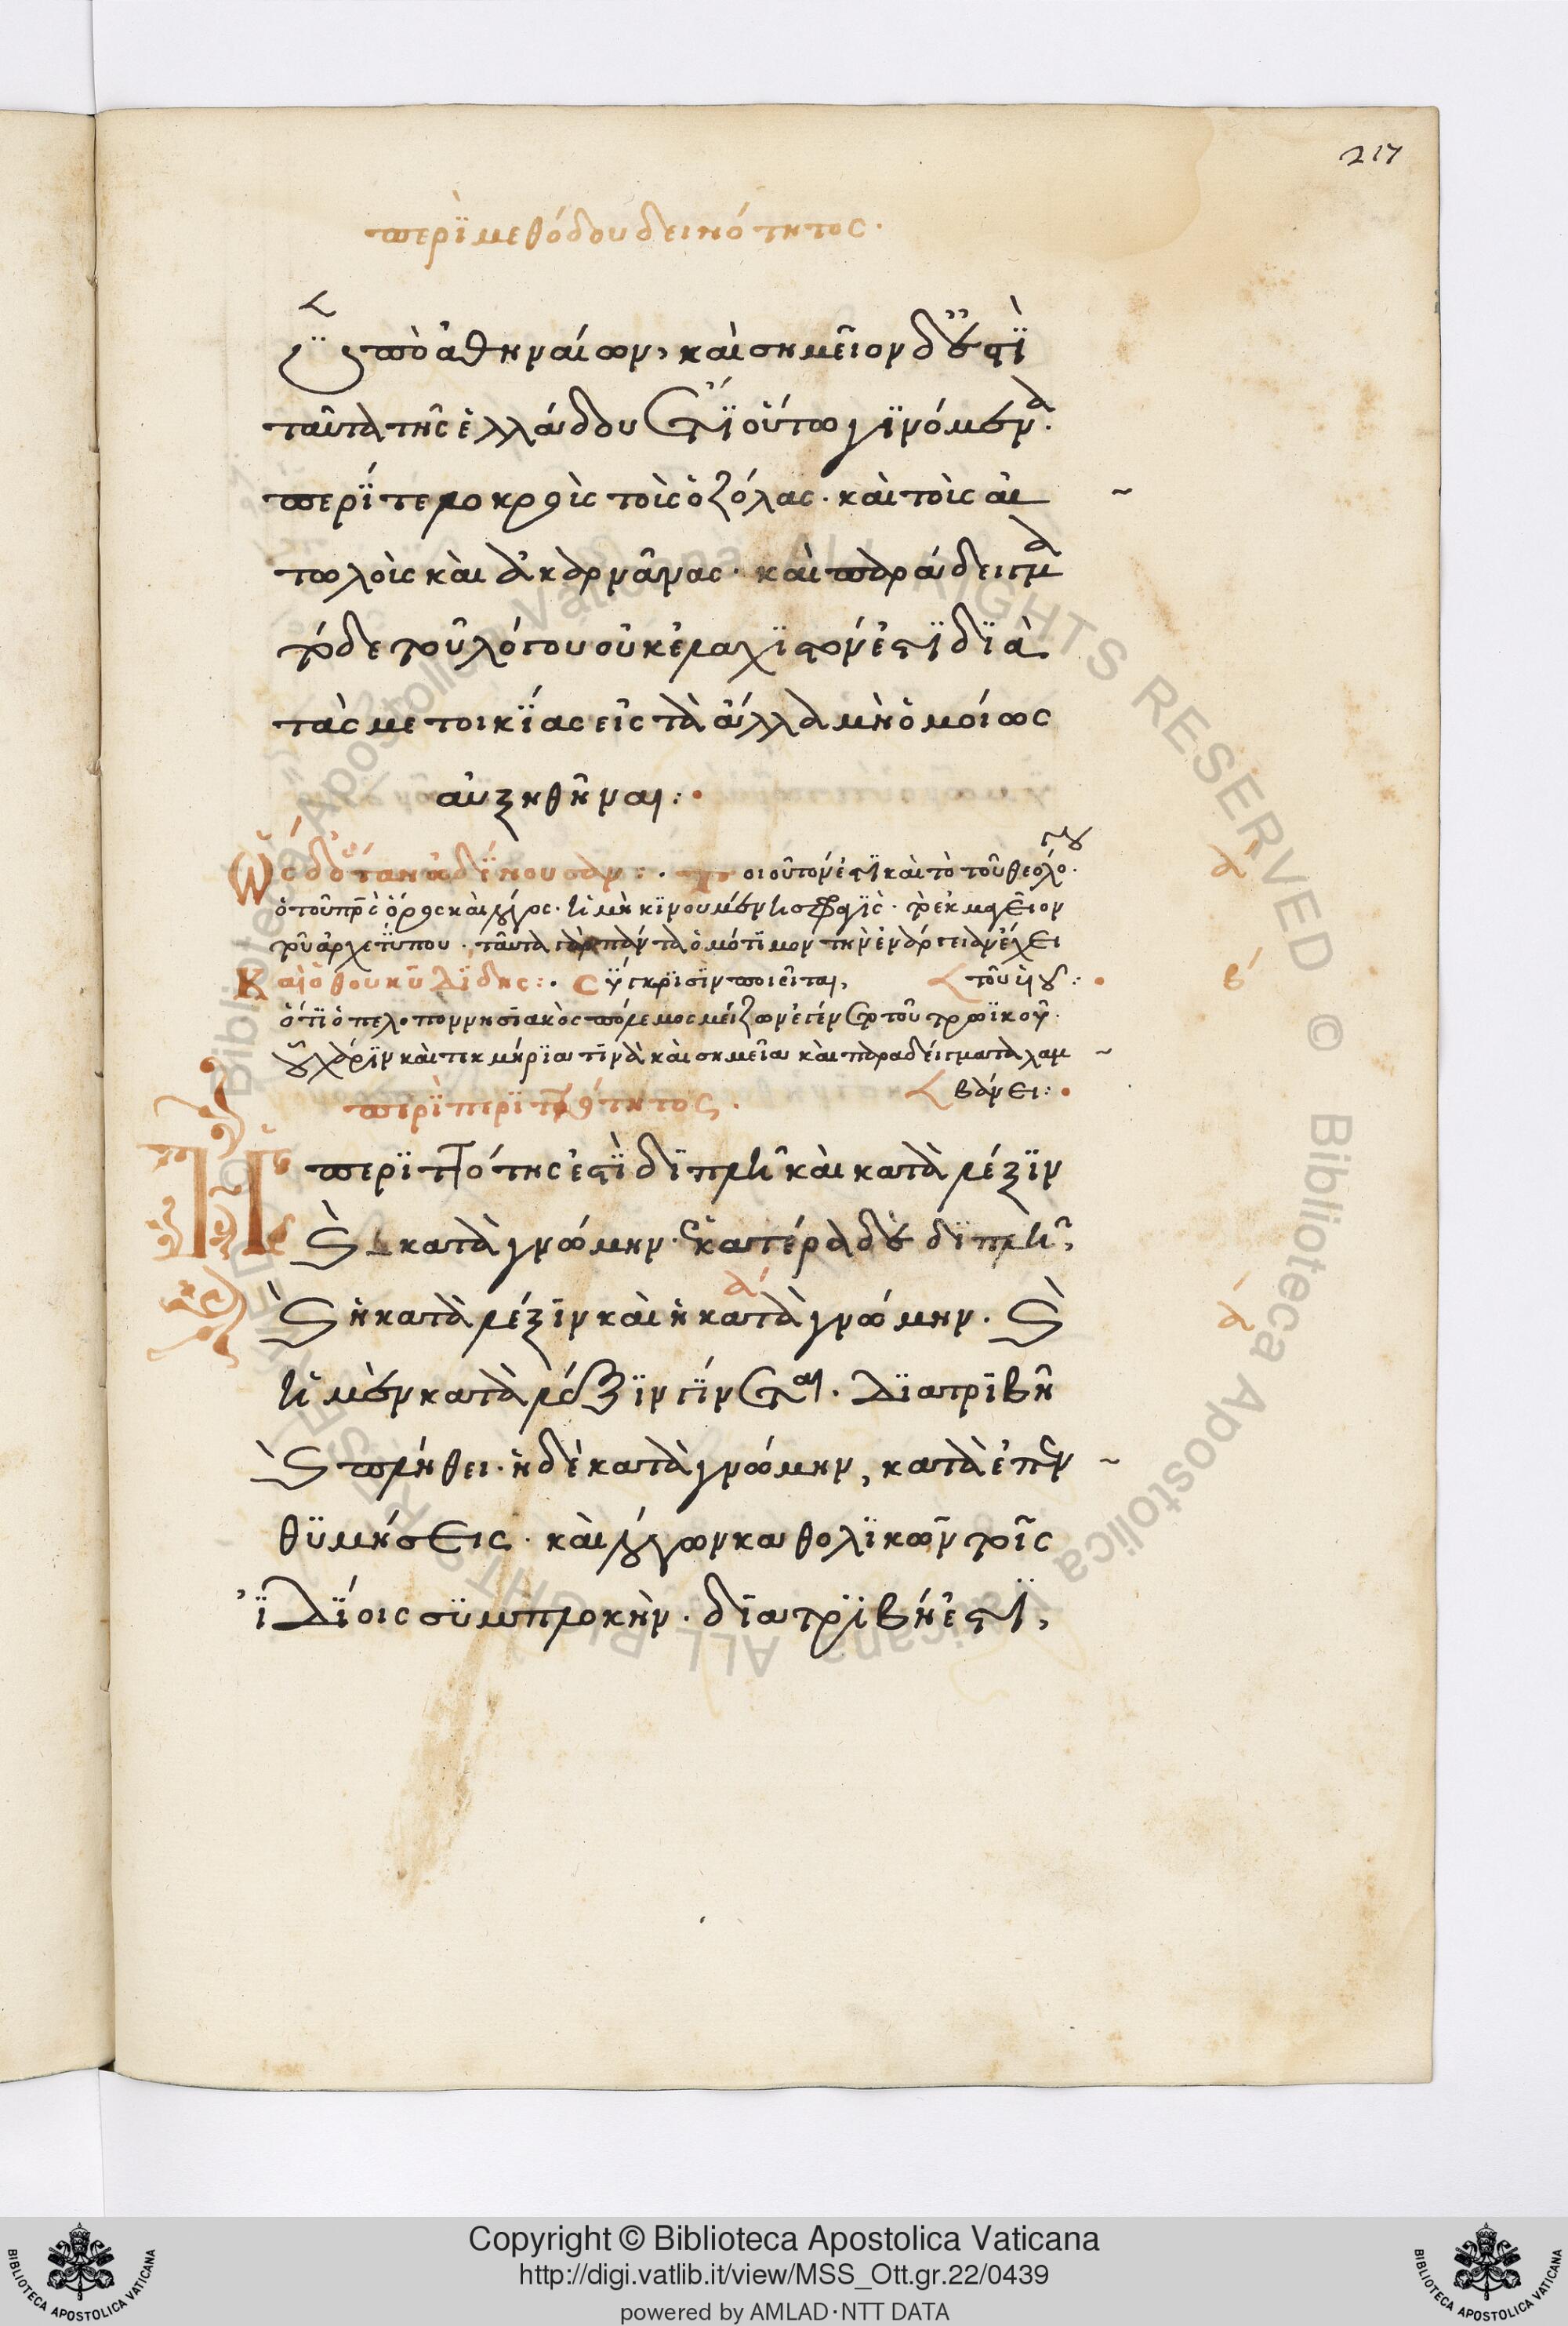 217
περὶ μεθόδου δεινότητος.
ὑπὸ ἀθηναίων, καὶ σημεῖον δ' ἐστὶ
ταῦτα τῆς ἑλλάδος ἔτι οὕτω γινόμενα.
περί τε λοκροὺς τοὺς ὀζόλας. καὶ τοὺς αἰ
τωλοὺς καὶ ἀκαρνᾶνας. καὶ παράδειγμα
τόδε τοῦ λόγου οὐκ ἐλάχιστόν ἐστι διὰ
τὰς μετοικίας εἰς τὰ ἄλλα μὴ ὁμοίως
αὐξηθῆναι:
Ὡς δ' ὅταν ὠδίνουσαν: τοιοῦτόν ἐστι καὶ τὸ τοῦ θεολόγου.
ὁ τοῦ πατρὸς ὅρος καὶ λόγος. ἡ μὴ κινουμένη σφραγίς. τὸ ἐκμαγεῖον
τοῦ ἀρχετύπου. ταῦτα γὰρ πάντα ὁμότιμον τὴν ἐνάργειαν ἔχει
Καὶ ὁ θουκυδίδης: Σύγκρισιν ποιεῖται,
τοῦ υἱοῦ:
ὅτι ὁ πελοποννησιακὸς πόλεμος μείζων ἐστὶν τοῦ τρωϊκοῦ.
οὗ χάριν καὶ τεκμήρια τινὰ καὶ σημεῖα καὶ παραδείγματα λαμ
βάνει:
περὶ περιττότητος.
περιττότης ἐστὶ διπλῆ καὶ κατὰ λέξιν
καὶ κατὰ γνώμην. ἑκατέρα δὲ διπλῆ,
καὶ ἡ κατὰ λέξιν καὶ ἡ κατὰ γνώμην. καὶ
ἡ μὲν κατὰ λέξιν γίνεται. διατριβῇ
καὶ πλήθει. ἡ δὲ κατὰ γνώμην, κατὰ ἐπεν
θυμήσεις. καὶ λόγων καθολικῶν τοῖς
ἰδίοις συμπλοκήν. διατριβή ἐστι,
α'
β'
α'
α'
Copyright © Biblioteca Apostolica Vaticana
http://digi.vatlib.it/view/MSS_Ott.gr.22/0439
powered by AMLAD·NTT DATA
BIBLIOTECA APOSTOLICA VATICANA
BIBLIOTECA APOSTOLICA VATICANA